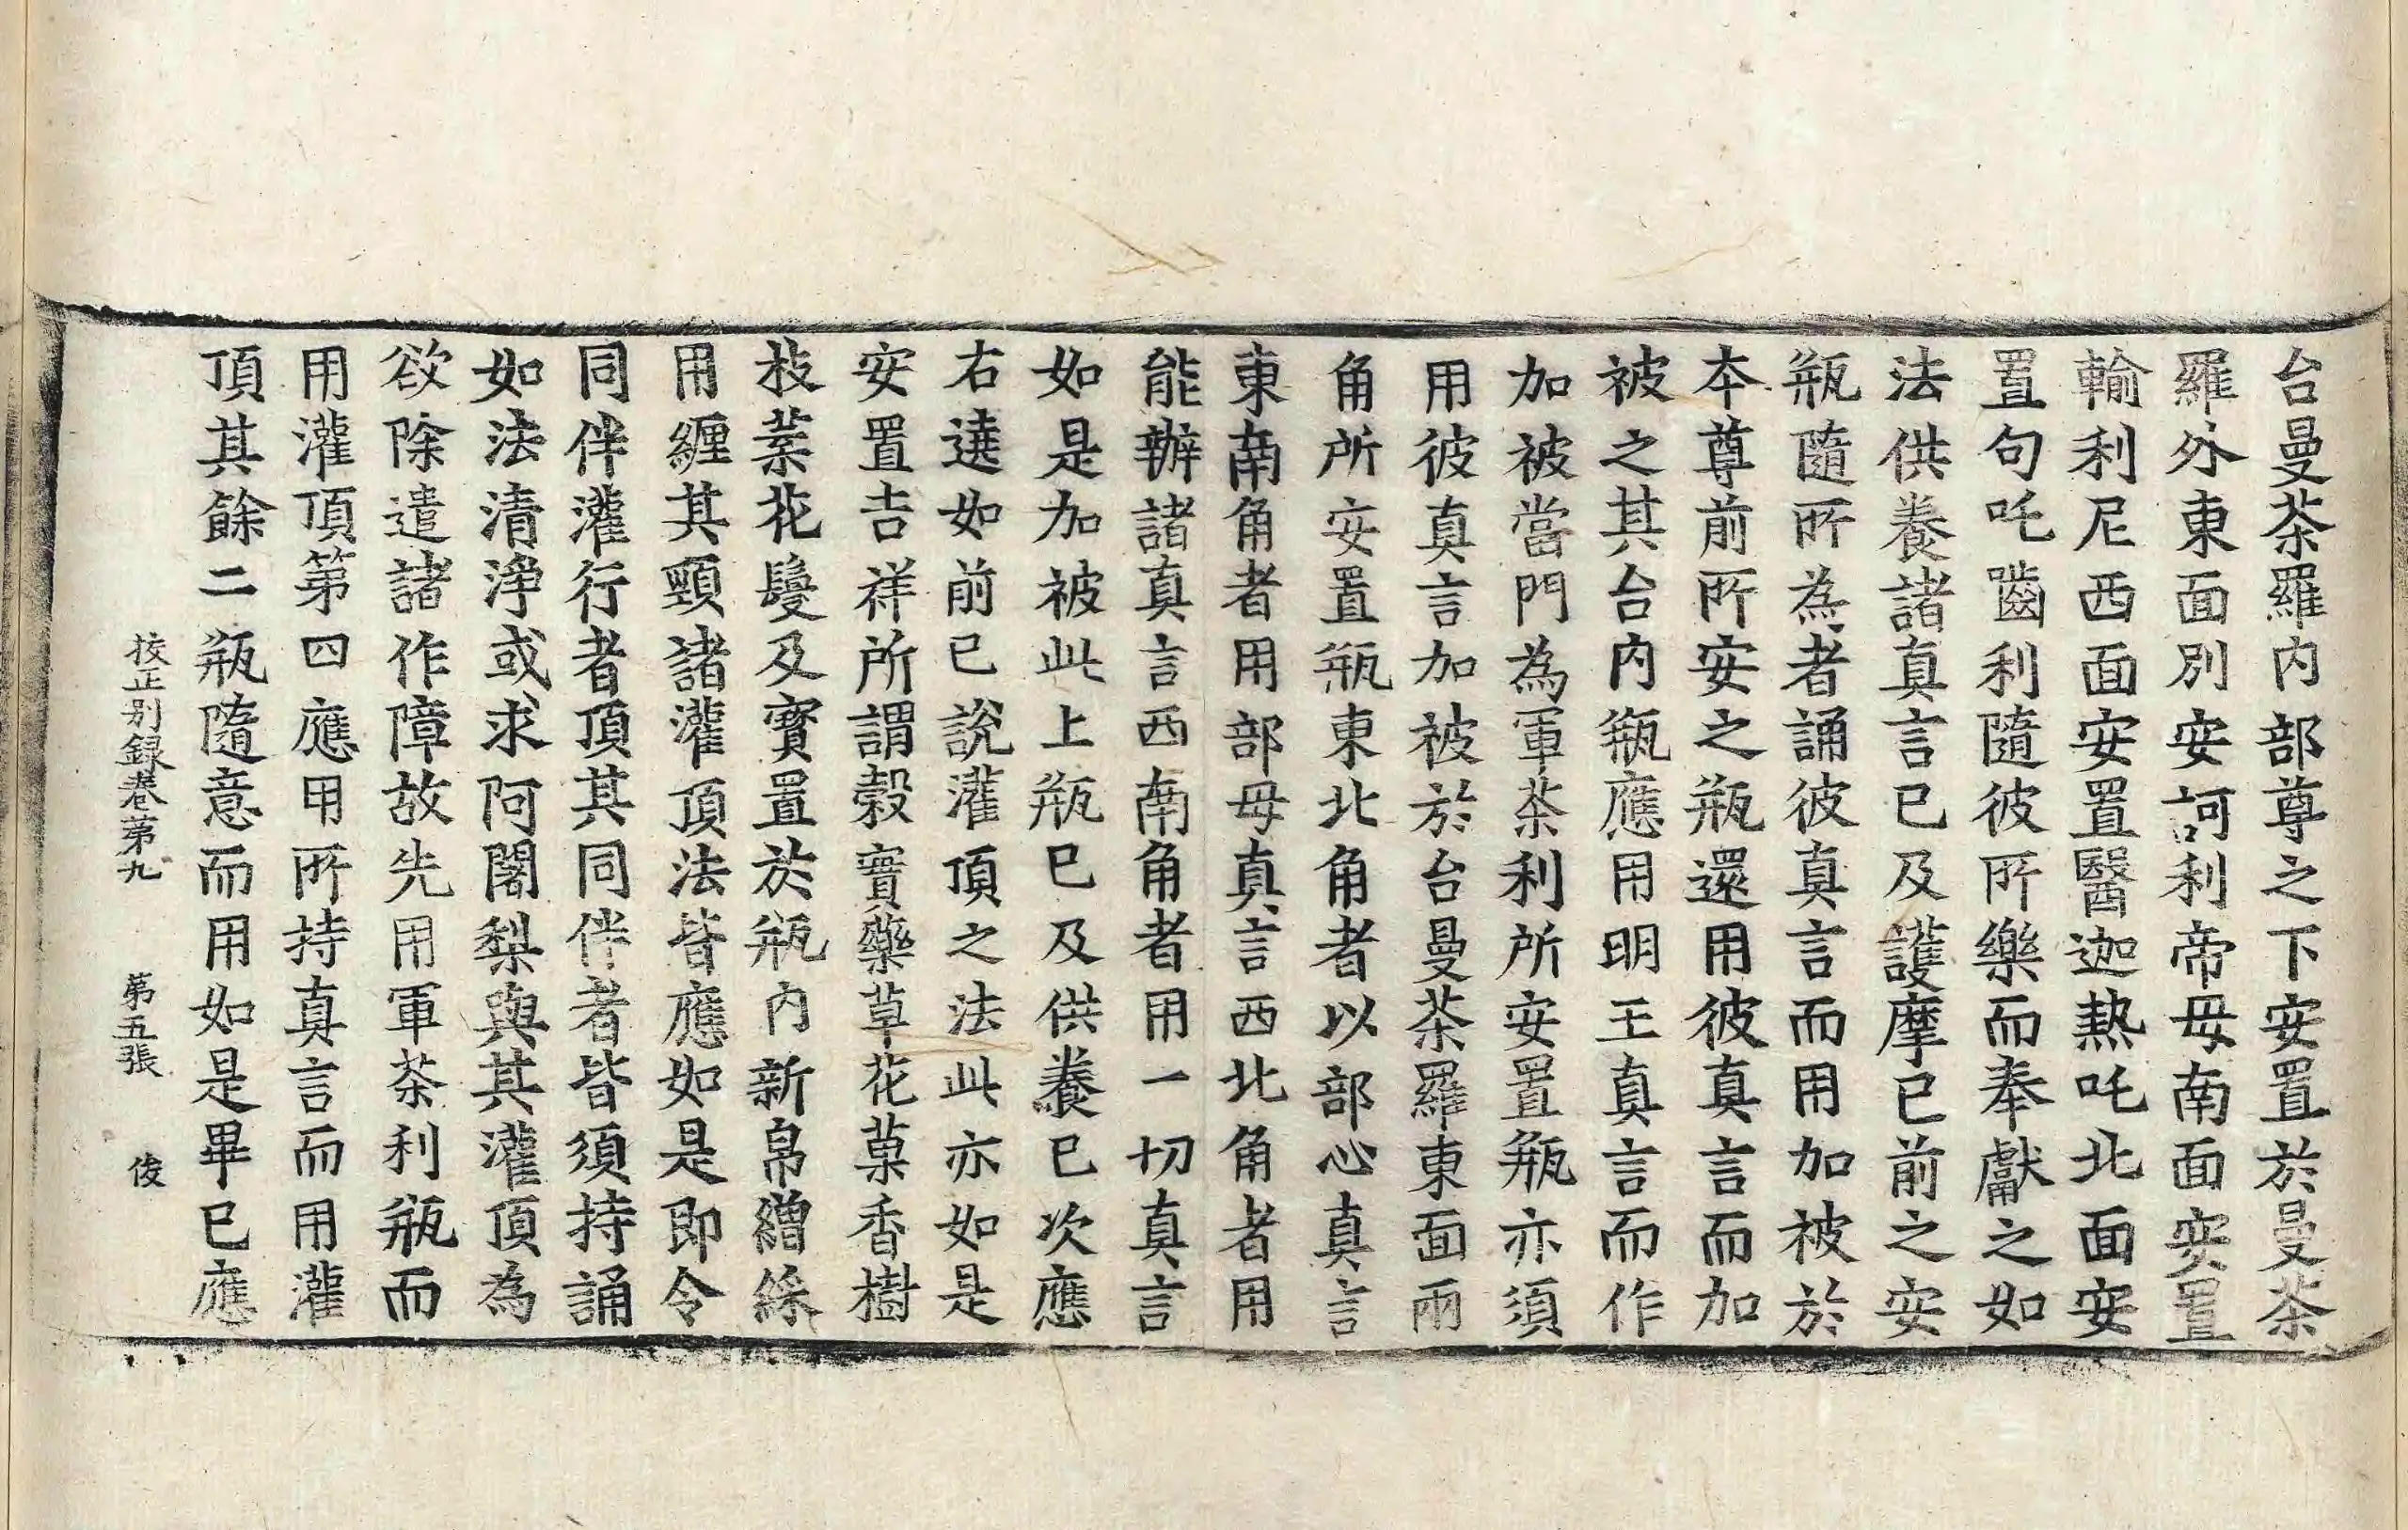 台曼茶羅內部尊之下安置於曼茶
羅外東面別安訶利帝母南面安置
輸利尼西面安置醫迦熱吒北面安
置句吒齒利隨彼所樂而奉獻之如
法供養諸真言已及護摩已前之安
瓶隨所為者誦彼真言而用加被於
本尊前所安之瓶還用彼真言而加
被之其台內瓶應用明王真言而作
加被當門為軍茶利所安置瓶亦須
用彼真言加被於台曼茶羅東面兩
角所安置瓶東北角者以部心真言
東南角者用部母真言西北角者用
能辦諸真言西南角者用一切真言
如是加被此上瓶已及供養已次應
右遶如前已說灌頂之法此亦如是
安置吉祥所謂穀實藥草花菓香樹
枝葉花鬘及寶置於瓶內新帛繒綵
用纏其頸諸灌頂法皆應如是即令
同伴灌行者頂其同伴者皆須持誦
如法清淨或求阿闍梨與其灌頂為
欲除遣諸作障故先用軍茶利瓶而
用灌頂第四應用所持真言而用灌
頂其餘二瓶隨意而用如是畢已應
校正別録卷第九 第五張 俊